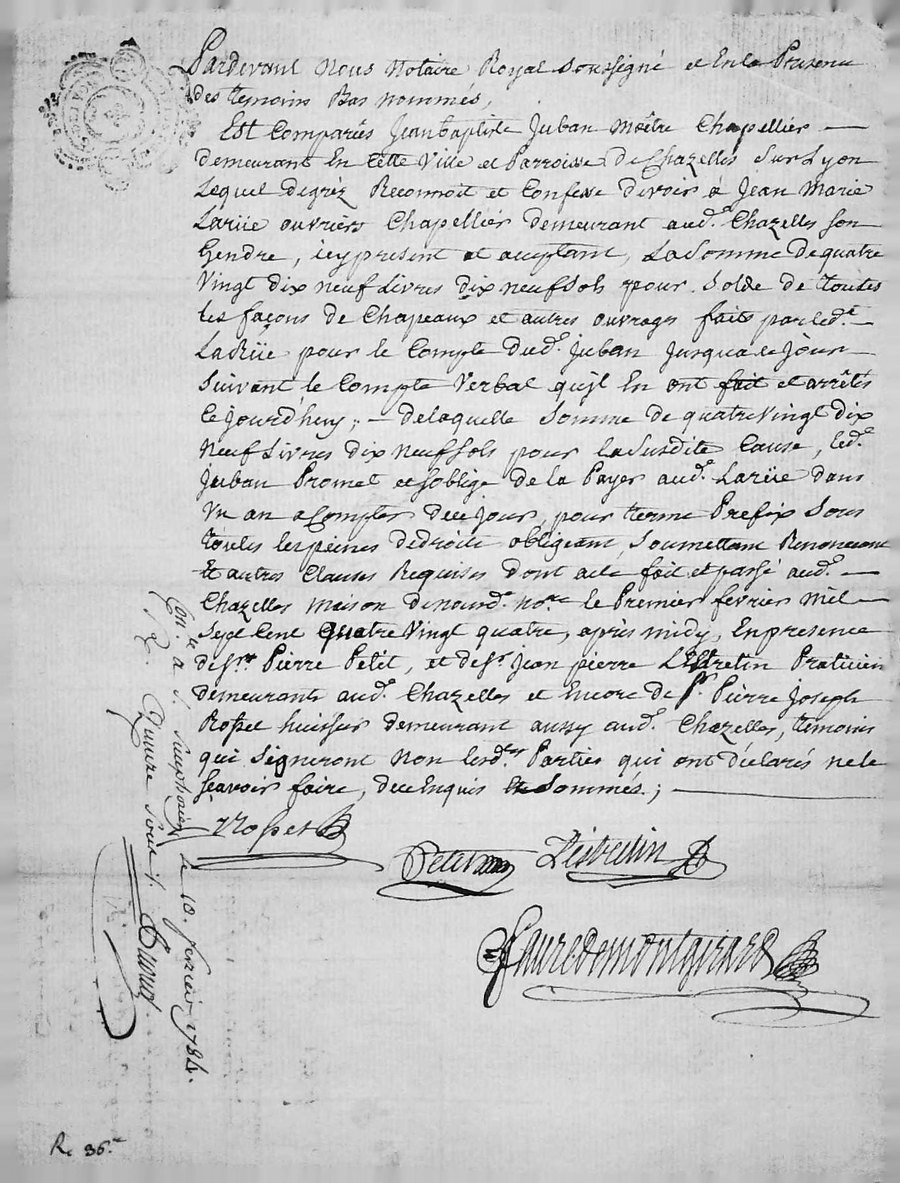 Pardevant Nous Notaire Royal Soussigné et En la Presence
des temoins Bas nommés,
Est Comparûs Jean baptiste Juban Maître Chapellier
demeurant En Cette Ville et Parroisse de Chazelles Sur Lyon
Lequel de gréz Reconnoit et Confesse devoir à Jean Marie
Larüe ouvriers Chapelliers demeurant aud.t Chazelles son
Gendre, icy present et acceptant, La Somme de quatre
Vingt dix neuf Livres dix neuf sols pour Solde de toutes
les façons de Chapeaux et autres ouvrages faits par led.t
Larüe pour le Compte dud.t Juban Jusqua ce Jour
Suivant le Compte Verbal qu'jl En ont fait et arrêtés
Ce jourd'huy; de laquelle Somme de quatre Vingt dix
Neuf Livres dix neuf sols pour la Susdite Cause, led.t
Juban Promet et soblige de la Payer aud.t Larüe dans
Un an a Compter de ce jour, pour terme Prefix Sous
toutes les peines de droits obligeant, Soumettant Renonceant
Et autres Clauses Requises dont acte fait et passé aud.t
Chazelles maison de nousd.t no.re le Premier fevrier Mil
Sept Cent quatre Vingt quatre, après midy, En presence
de s.r Pierre Petit, et de s.r jean pierre L'Estretin Praticien
demeurants aud.t Chazelles et Encore de s.r Pierre Joseph
Rospet huissier demeurant aussy aud.t Chazelles, temoins
qui Signeront Non lesd.tes Parties qui ont déclarés ne le
Sçavoir faire, de ce Enquis et Sommés.;
Rospet
Petit
Faure de montgirard
Con.lé a S. Simphorien le 10. fevrier 1784.
R. Quinze Sous
R. 36.